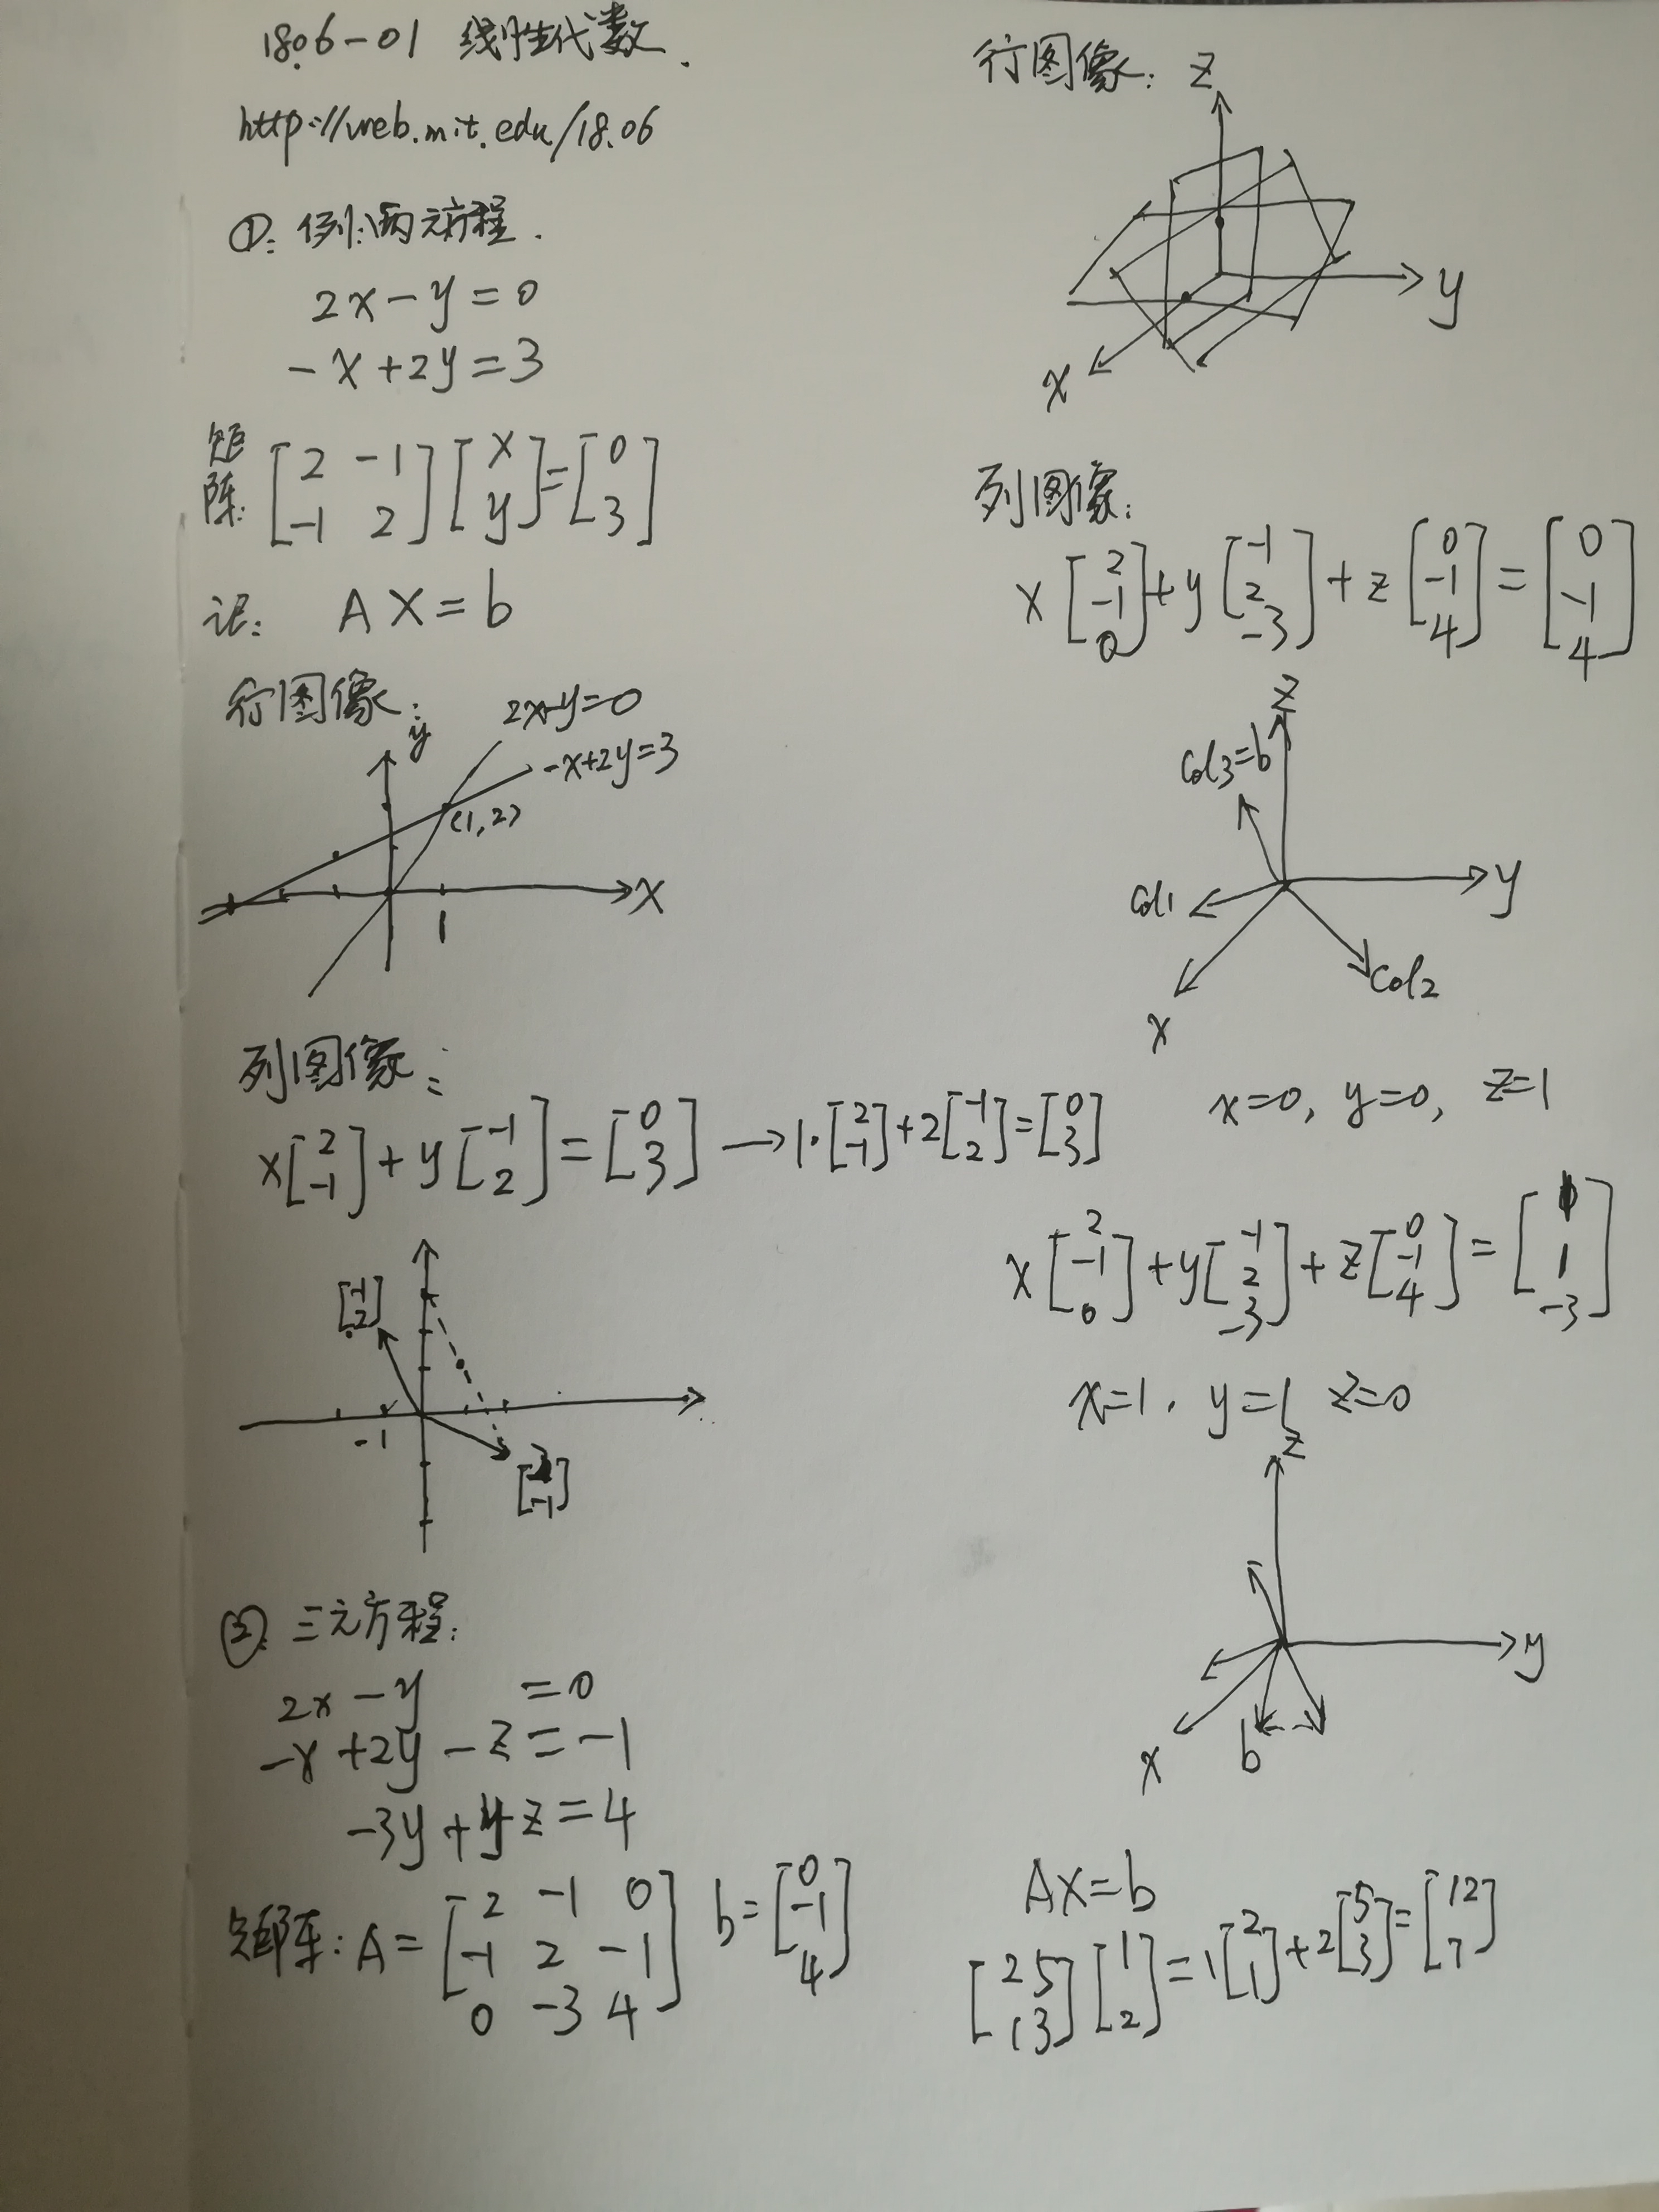 18.06-01 线性代数.
http://web.mit.edu/18.06
①: 例:两元方程.
2x-y=0
-x+2y=3
矩阵: [2 -1; -1 2][x; y]=[0; 3]
记: AX=b
行图像:
y
2x-y=0
-x+2y=3
(1,2)
x
1
列图像:
x[2; -1]+y[-1; 2]=[0; 3] → 1·[2; -1]+2[-1; 2]=[0; 3]
[-1; 2]
-1
[2; -1]
②. 三元方程:
2x-y =0
-x+2y-z=-1
-3y+4z=4
矩阵: A=[2 -1 0; -1 2 -1; 0 -3 4] b=[0; -1; 4]
行图像:
z
y
x
列图像:
x[2; -1; 0]+y[-1; 2; -3]+z[0; -1; 4]=[0; -1; 4]
z
col3=b
y
col1
col2
x
x=0, y=0, z=1
x[2; -1; 0]+y[-1; 2; -3]+z[0; -1; 4]=[1; 1; -3]
x=1, y=1 z=0
z
y
x
b
AX=b
[2 5; 1 3][1; 2]=1[2; 1]+2[5; 3]=[12; 7]